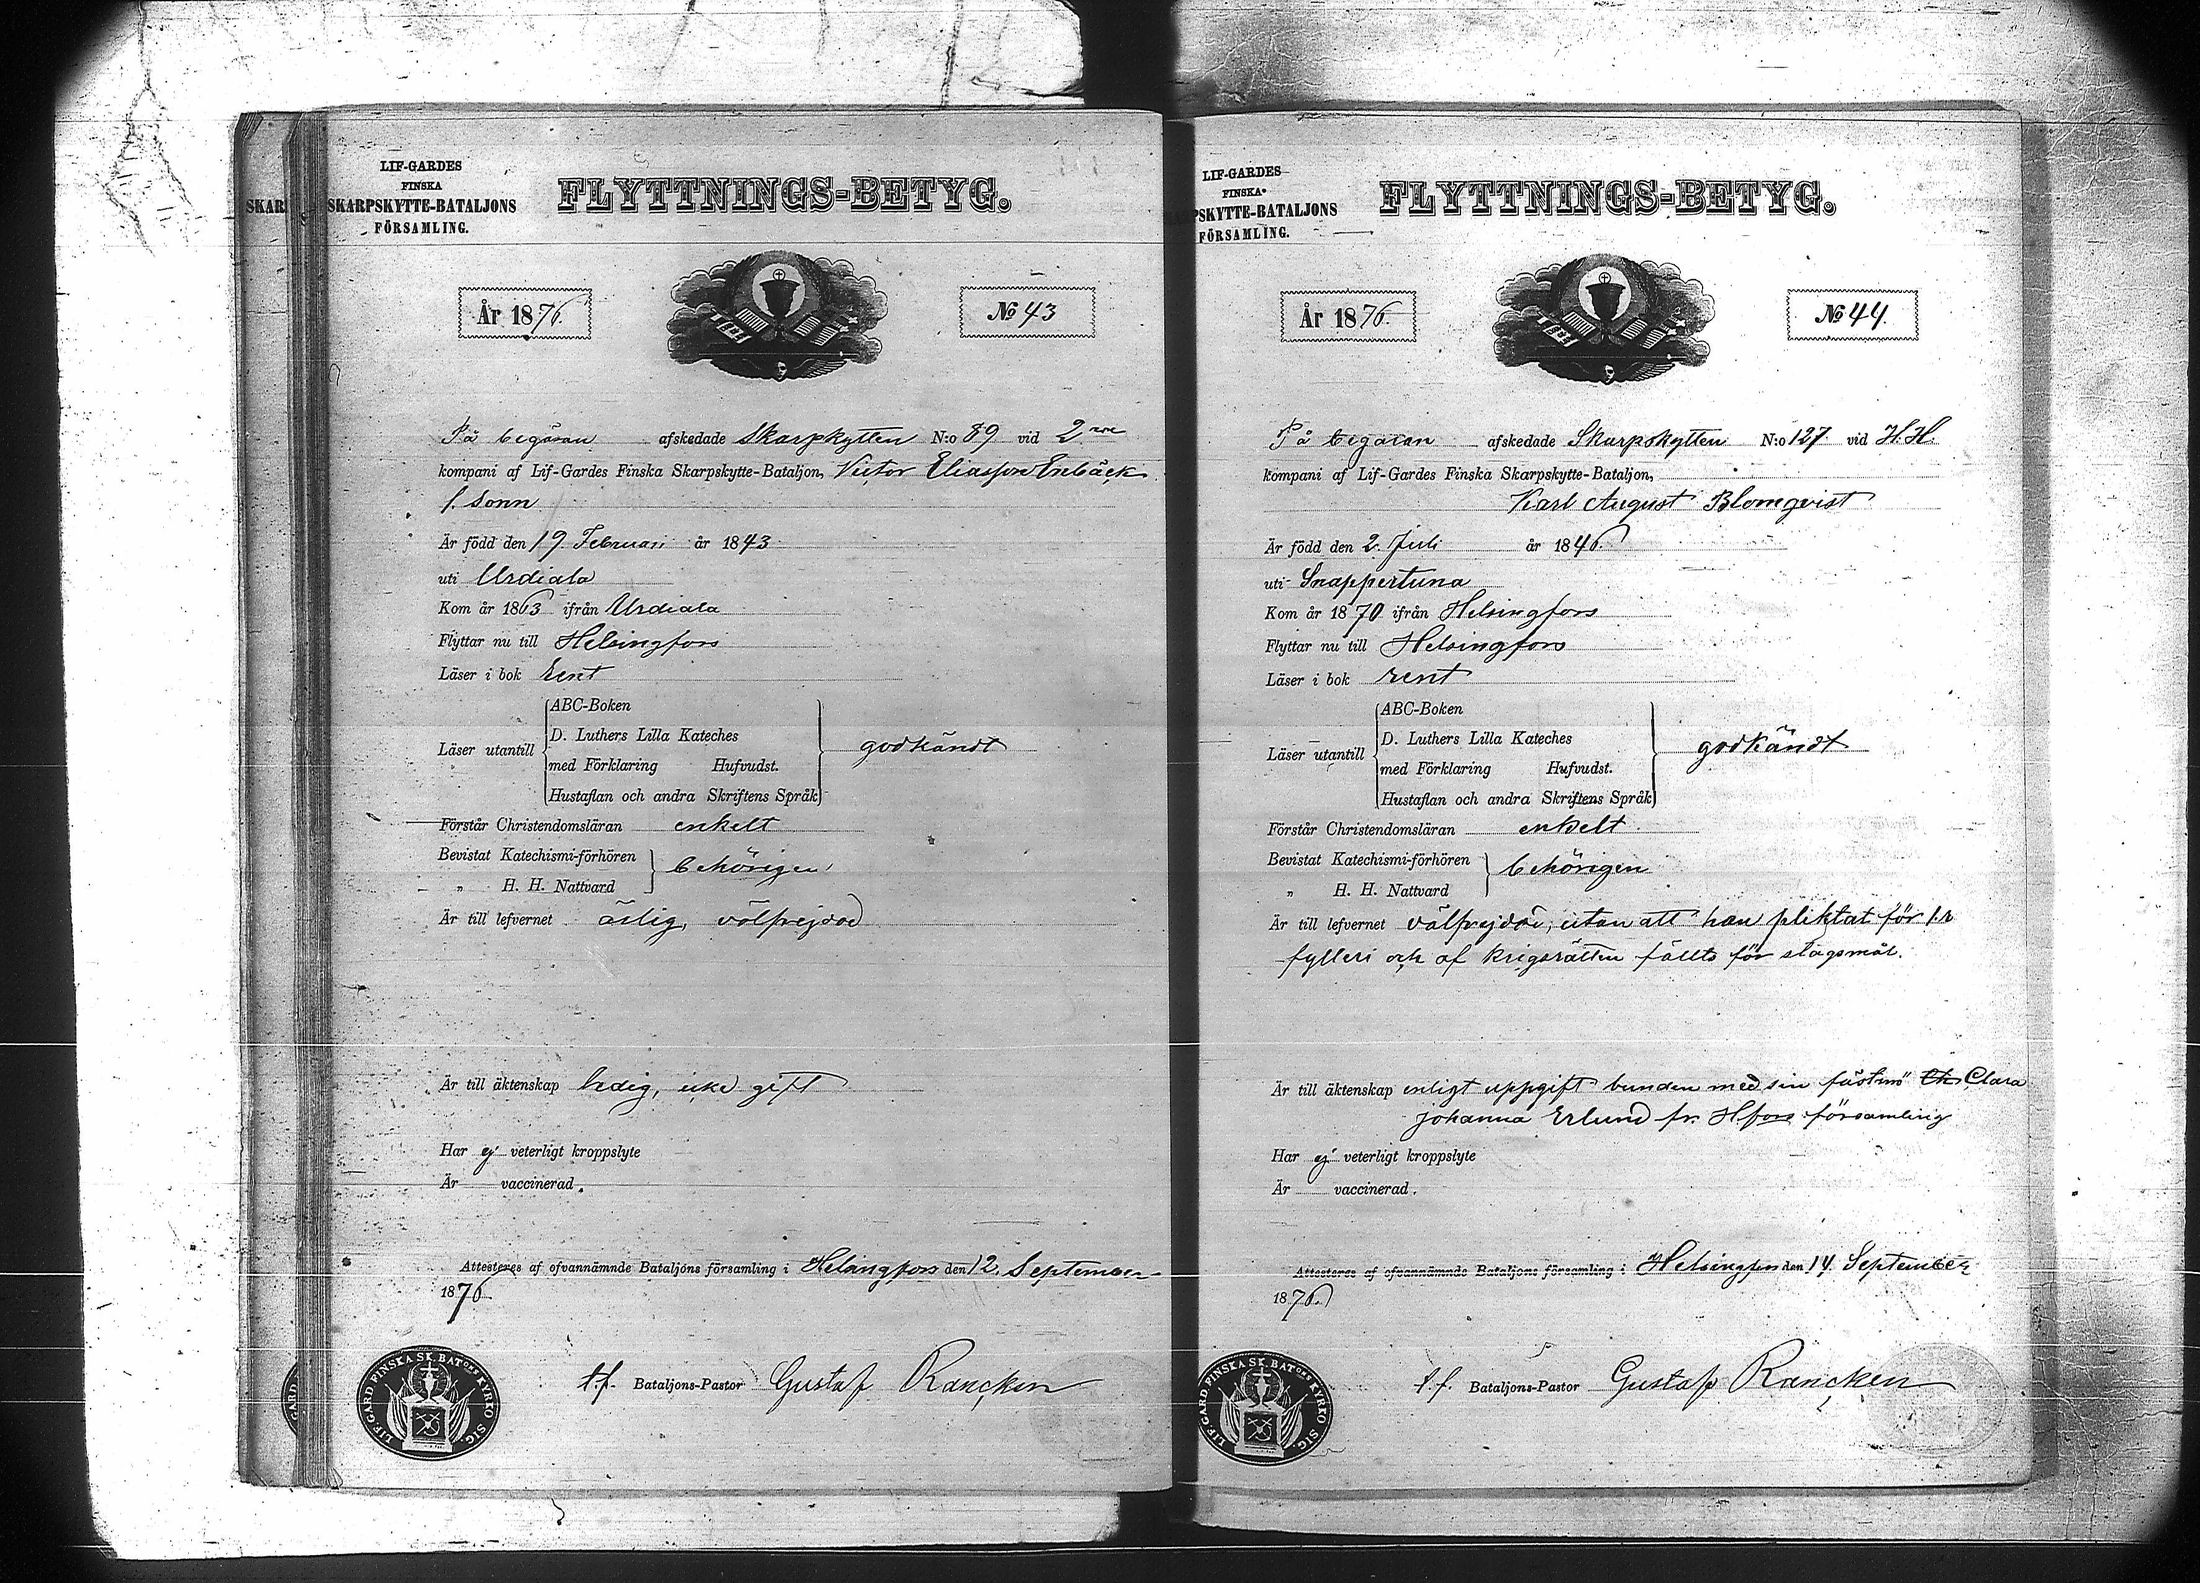 LIF-GARDES
FINSKA
SKARPSKYTTE-BATALJONS
FÖRSAMLING.
FLYTTNINGS-BETYG.
År 1876.
No 43
På begäran afskedade Skarpskytten N:o 89 vid 2
kompani af Lif-Gardes Finska Skarpskytte-Bataljon, Victor Eliasson Enbäck
f. Sonn
Är född den 19 Februari år 1843
uti Urdiala
Kom år 1863 ifrån Urdiala
Flyttar nu till Helsingfors
Läser i bok rent
ABC-Boken
D. Luthers Lilla Kateches
Läser utantill godkändt
med Förklaring Hufvudst.
Hustaflan och andra Skriftens Språk
Förstår Christendomsläran enkelt
Bevistat Katechismi-förhören behörigen
„ H. H. Nattvard
Är till lefvernet ärlig, välfrejdad
Är till äktenskap ledig, icke gift
Har ej veterligt kroppslyte
Är vaccinerad.
Attesteras af ofvannämnde Bataljons församling i Helsingfors den 12 September
1876.
t.f. Bataljons-Pastor Gustaf Rancken
LIF-GARD. FINSKA SK. BAT:ONS KYRKO SIG.
LIF-GARDES
FINSKA
SKYTTE-BATALJONS
FÖRSAMLING.
FLYTTNINGS-BETYG.
År 1876.
No 44.
På begäran afskedade Skarpskytten N:o 127 vid H.H.
kompani af Lif-Gardes Finska Skarpskytte-Bataljon,
Karl August Blomqvist
Är född den 2. Juli år 1846.
uti Snappertuna
Kom år 1870 ifrån Helsingfors
Flyttar nu till Helsingfors
Läser i bok rent
ABC-Boken
D. Luthers Lilla Kateches
Läser utantill godkändt
med Förklaring Hufvudst.
Hustaflan och andra Skriftens Språk
Förstår Christendomsläran enkelt.
Bevistat Katechismi-förhören behörigen
„ H. H. Nattvard
Är till lefvernet välfrejdad, utan att han pliktat för
fylleri och af krigsrätten fällts för slagsmål.
Är till äktenskap enligt uppgift bunden med sin fästmö Clara
Johanna Erlund fr. H:fors församling
Har ej veterligt kroppslyte
Är vaccinerad.
Attesteras af ofvannämnde Bataljons församling i Helsingfors den 14 September
1876.
t.f. Bataljons-Pastor Gustaf Rancken
LIF-GARD. FINSKA SK. BAT:ONS KYRKO SIG.